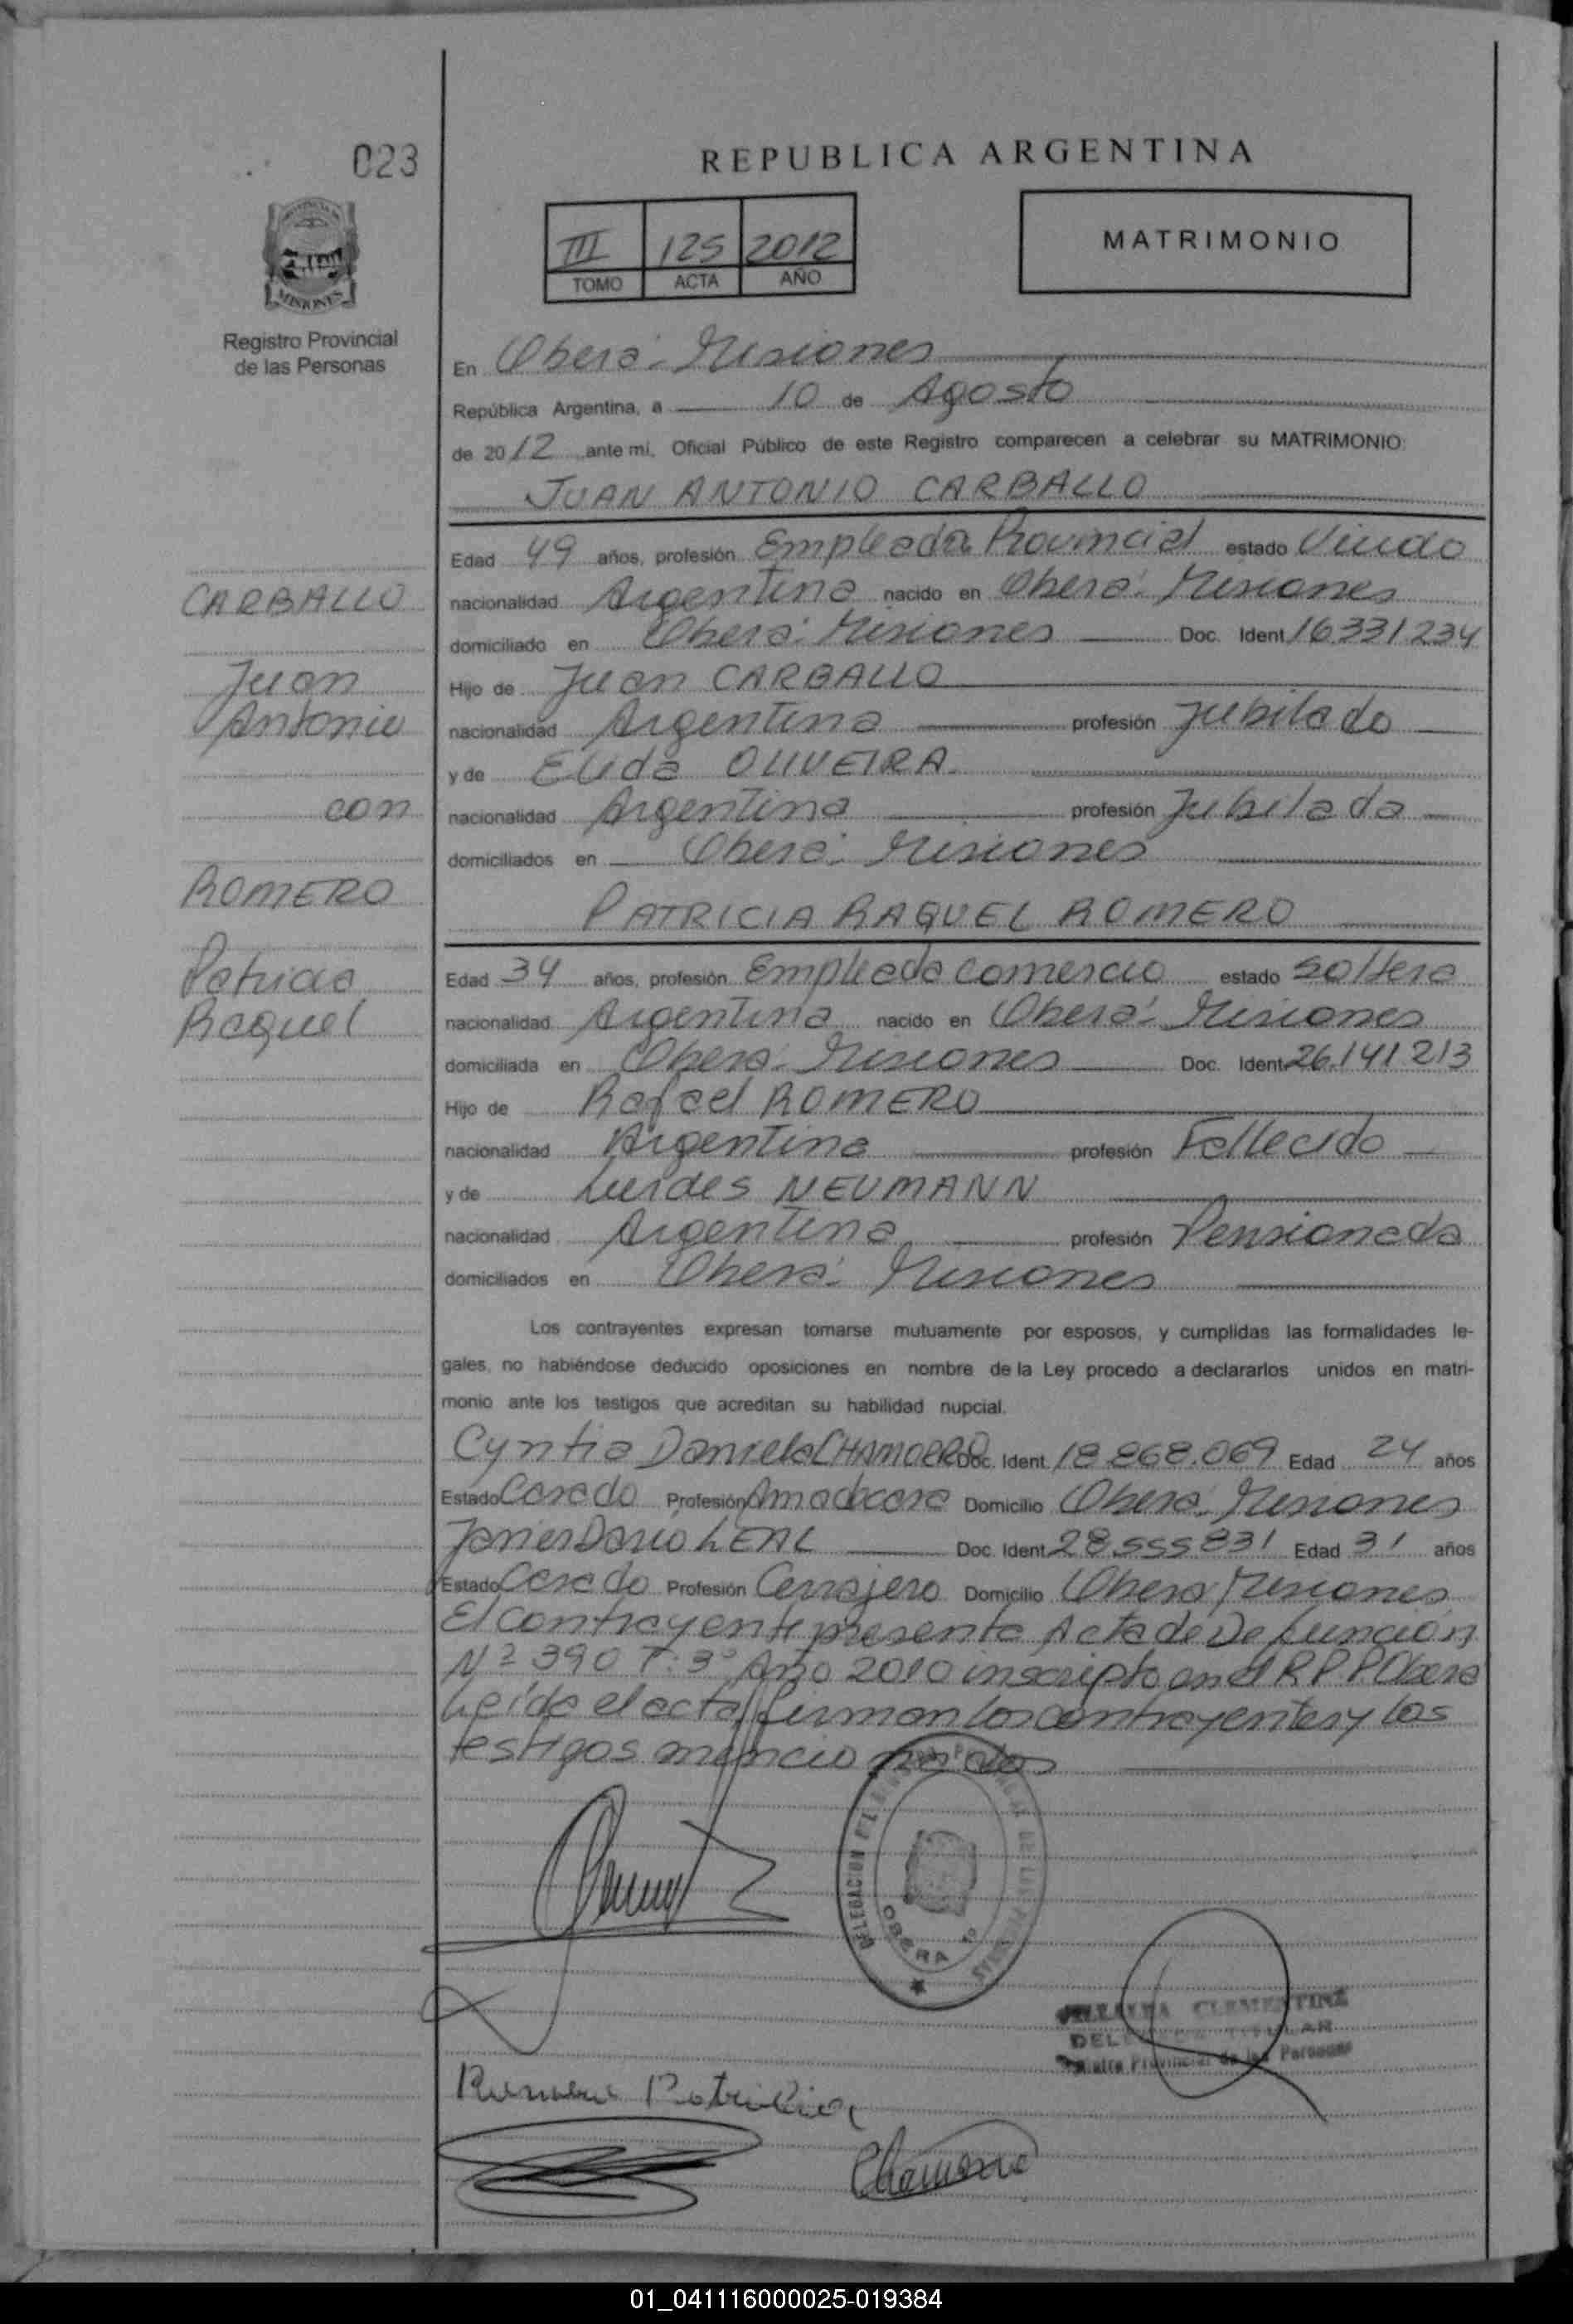 023
REPUBLICA ARGENTINA
III 125 2012
TOMO ACTA AÑO
MATRIMONIO
PROVINCIA DE
MISIONES
Registro Provincial
de las Personas
En Oberá - Misiones
República Argentina, a 10 de Agosto
de 2012 ante mi, Oficial Público de este Registro comparecen a celebrar su MATRIMONIO:
JUAN ANTONIO CARBALLO
Edad 49 años, profesión Empleado Provincial estado Viudo
CARBALLO
nacionalidad Argentina nacido en Oberá - Misiones
domiciliado en Oberá - Misiones Doc. Ident. 16.331.234
Juan
Hijo de Juan CARBALLO
Antonio
nacionalidad Argentina profesión Jubilado
y de Elida OLIVEIRA
con
nacionalidad Argentina profesión Jubilada
domiciliados en Oberá - Misiones
ROMERO
PATRICIA RAQUEL ROMERO
Patricia
Edad 34 años, profesión Empleada Comercio estado Soltera
Raquel
nacionalidad Argentina nacido en Oberá - Misiones
domiciliada en Oberá - Misiones Doc. Ident. 26.141.213
Hijo de Rafael ROMERO
nacionalidad Argentina profesión Fallecido
y de Lurdes NEUMANN
nacionalidad Argentina profesión Pensionada
domiciliados en Oberá - Misiones
Los contrayentes expresan tomarse mutuamente por esposos, y cumplidas las formalidades le-
gales, no habiéndose deducido oposiciones en nombre de la Ley procedo a declararlos unidos en matri-
monio ante los testigos que acreditan su habilidad nupcial.
Cyntia Daniela CHAMORRO Doc. Ident. 18.868.069 Edad 24 años
Estado Casado Profesión Ama de casa Domicilio Oberá - Misiones
Javier Dario LEAL Doc. Ident. 28.555.831 Edad 31 años
Estado Casado Profesión Cerrajero Domicilio Oberá Misiones
El contrayente presenta Acta de Defunción
Nº 390 T: 3º Año 2010 inscripto en el R.P.P. Oberá
Leida el acta, firman los contrayentes y los
testigos mencionados
DELEGACION DE LAS PERSONAS
OBERA
VILLALBA CLEMENTINA
DELEGADA TITULAR
Registro Provincial de las Personas
Romero Patricia
Chamorro
01_041116000025-019384